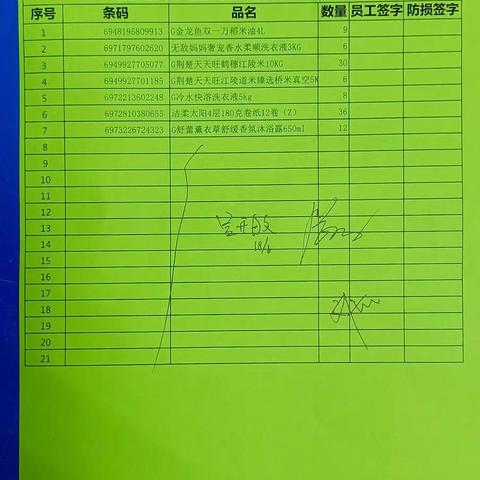 序号 条码 品名 数量 员工签字 防损签字
1 6948195809913 G金龙鱼双一万稻米油4L 9
2 6971797602620 无敌妈妈奢宠香水柔顺洗衣液3KG 6
3 6949927705077 G荆楚天天旺鹤穗江陵米10KG 30
4 6949927701185 G荆楚天天旺江陵道米臻选桥米真空5K 6
5 6972213602248 G冷水快溶洗衣液5kg 8
6 6972810380655 洁柔太阳4层180克卷纸12卷（Z） 36
7 6973226724323 G舒蕾薰衣草舒缓香氛沐浴露650ml 12
8
9
10
11
12
13
14
15
16
17
18
19
20
21